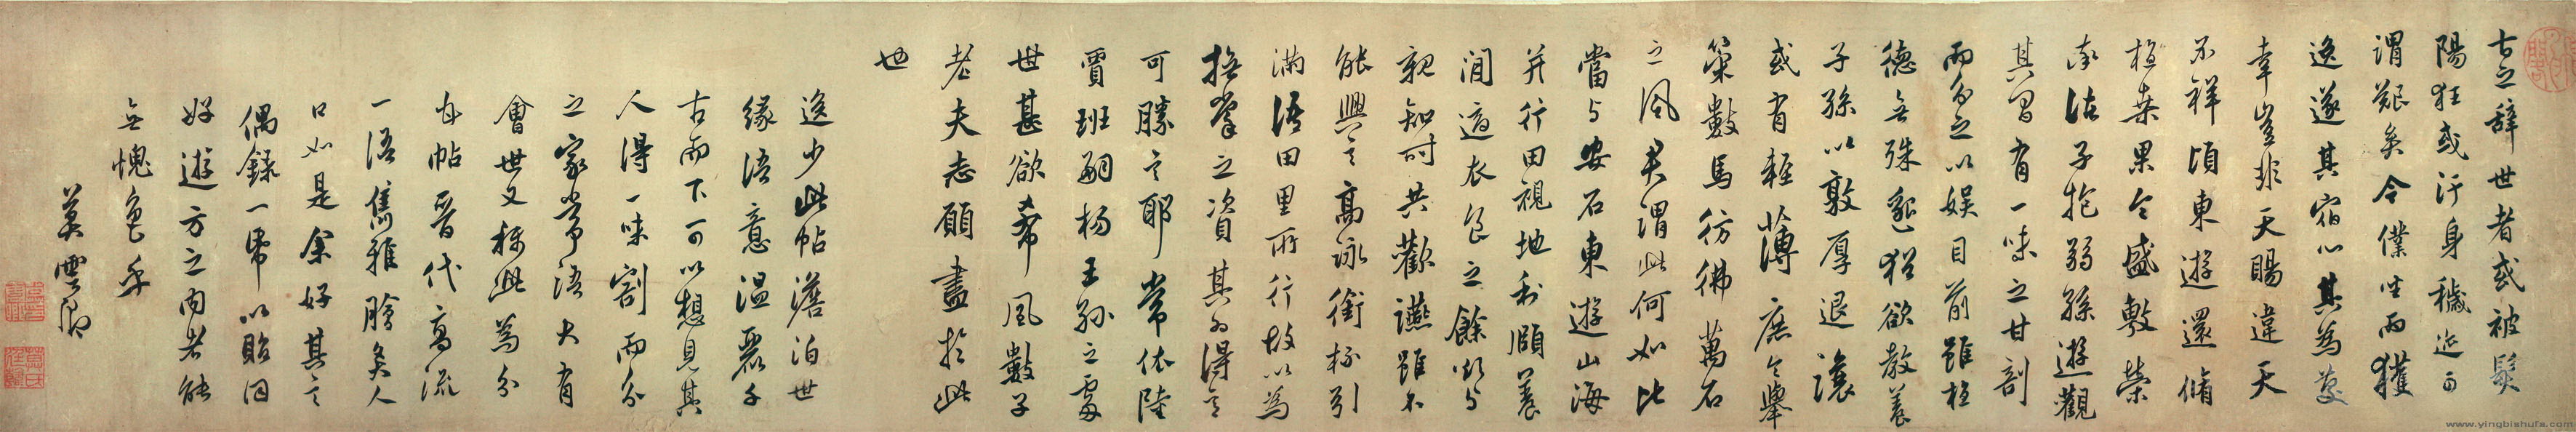 古之辭世者或被髮
陽狂或汙身穢迹可
謂艱矣今僕坐而獲
逸遂其宿心其為慶
幸豈非天賜違天
不祥頃東遊還脩
植桑果今盛敷榮
率諸子抱弱孫遊觀
其間有一味之甘割
而分之以娛目前雖植
德無殊邈猶欲教養
子孫以敦厚退讓
或有輕薄庶令舉
策數馬彷彿萬石
之風君謂此何如比
當與安石東遊山海
并行田視地利頤養
閒適衣食之餘欲與
親知時共歡讌雖不
能興言高詠銜杯引
滿語田里所行故以為
撫掌之資其為得意
可勝言耶常依陸
賈班嗣楊王孫之處
世甚欲希風數子
老夫志願盡於此
也
逸少此帖澹泊世
緣語意溫麗千
古而下可以想見其
人得一味割而分
之家常語大有
會世又稱此為分
甘帖晉代高流
一語雋雅膾炙人
口如是余好其言
偶錄一帋以貽同
好遊方之內者能
無愧色乎
莫雲卿
www.yingbishufa.com